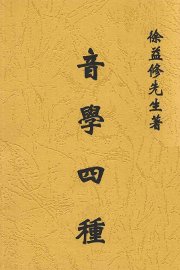 徐益修先生著
音學四種